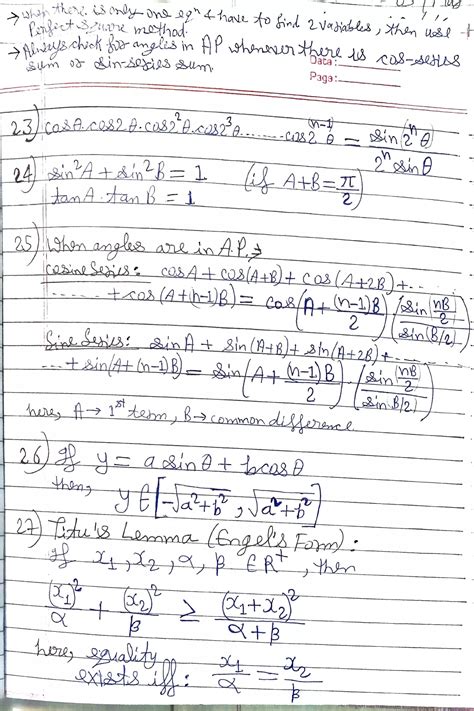 → when there is only one eqⁿ & have to find 2 variables, then use
Perfect square method.
→ Always check for angles in AP whenever there is cos-series
sum or sin-series sum
Date:
Page:
23) cosθ.cos2θ.cos2²θ.cos2³θ........cos2^(n-1)θ = sin(2ⁿθ) / 2ⁿ sinθ
24) sin²A + sin²B = 1 (if A+B = π/2)
tanA . tanB = 1
25) When angles are in A.P. ⇒
Cosine Series: cosA + cos(A+B) + cos(A+2B) + ..
...... + cos(A+(n-1)B) = cos(A + (n-1)B/2) (sin(nB/2) / sin(B/2))
Sine Series: sinA + sin(A+B) + sin(A+2B) + ......
.. + sin(A+(n-1)B) = sin(A + (n-1)B/2) . (sin(nB/2) / sin(B/2))
here, A → 1st term, B → common difference
26) If y = a sinθ + b cosθ
then, y ∈ [-√a²+b², √a²+b²]
27) Titu's Lemma (Engel's Form):
If x₁, x₂, α, β ∈ R⁺, then
(x₁)²/α + (x₂)²/β ≥ (x₁+x₂)²/α+β
here, equality
exists iff: x₁/α = x₂/β